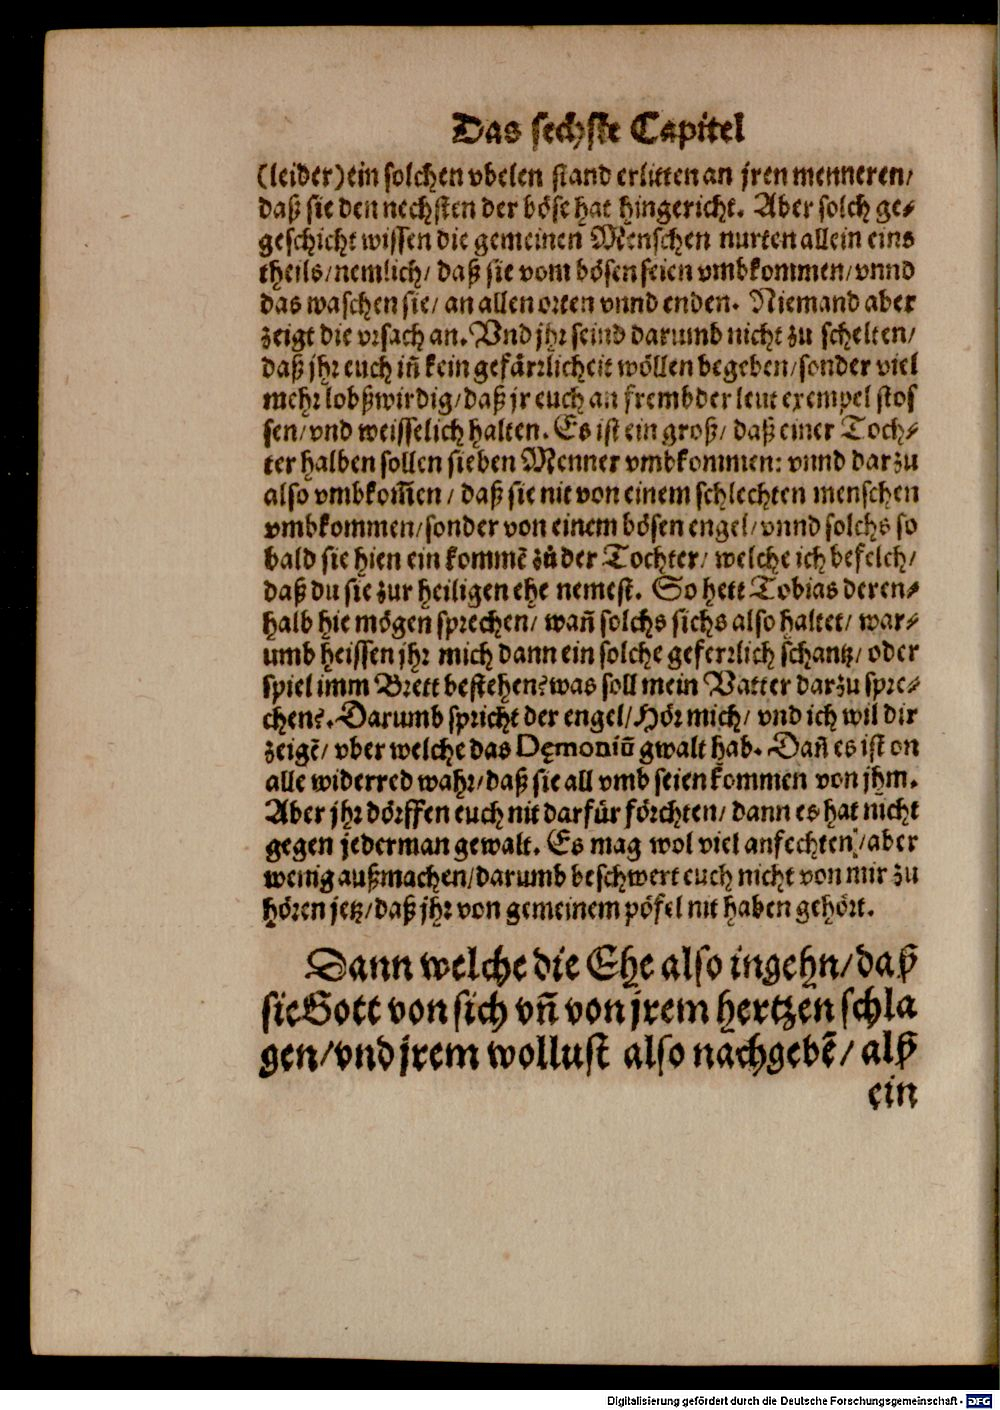 Das sechste Capitel
(leider) ein solchen vbelen stand erlitten an jren menneren/
daß sie den nechsten der böse hat hingericht. Aber solch ge⸗
geschicht wissen die gemeinen Menschen nurten allein eins
theils/ nemlich/ daß sie vom bösen seien vmbkommen/ vnnd
das waschen sie/ an allen orten vnnd enden. Niemand aber
zeigt die vrsach an. Vnd jhr seind darumb nicht zu schelten/
daß jhr euch iñ kein gefärrlicheit wöllen begeben/ sonder viel
mehr lobßwirdig/ daß jr euch an frembder leut exempel stos
sen/ vnd weisselich halten. Es ist ein groß/ daß einer Toch⸗
ter halben sollen sieben Menner vmbkommen: vnnd darzu
also vmbkom̃en/ daß sie nit von einem schlechten menschen
vmbkommen/ sonder von einem bösen engel/ vnnd solchs so
bald sie hien ein kommẽ zů der Tochter/ welche ich befelch/
daß du sie zur heiligen ehe nemest. So hett Tobias deren⸗
halb hie mögen sprechen/ wañ solchs sichs also haltet/ war⸗
umb heissen jhr mich dann ein solche geferrlich schantz/ oder
spiel imm Brett bestehen? was soll mein Vatter darzu spre⸗
chen?. Darumb spricht der engel/ Hör mich/ vnd ich wil dir
zeigẽ/ vber welche das Dęmoniũ gwalt hab. Dañ es ist on
alle widerred wahr/ daß sie all vmb seien kommen von jhm.
Aber jhr dörffen euch nit darfür förchten/ dann es hat nicht
gegen jederman gewalt. Es mag wol viel anfechten/ aber
wenig außmachen/ darumb beschwert euch nicht von mir zu
hören jetz/ daß jhr von gemeinem pöfel nit haben gehört.
Dann welche die Ehe also ingehn/ daß
sie Gott von sich vñ von jrem hertzen schla
gen/ vnd jrem wollust also nachgebẽ/ alß
ein
Digitalisierung gefördert durch die Deutsche Forschungsgemeinschaft - DFG